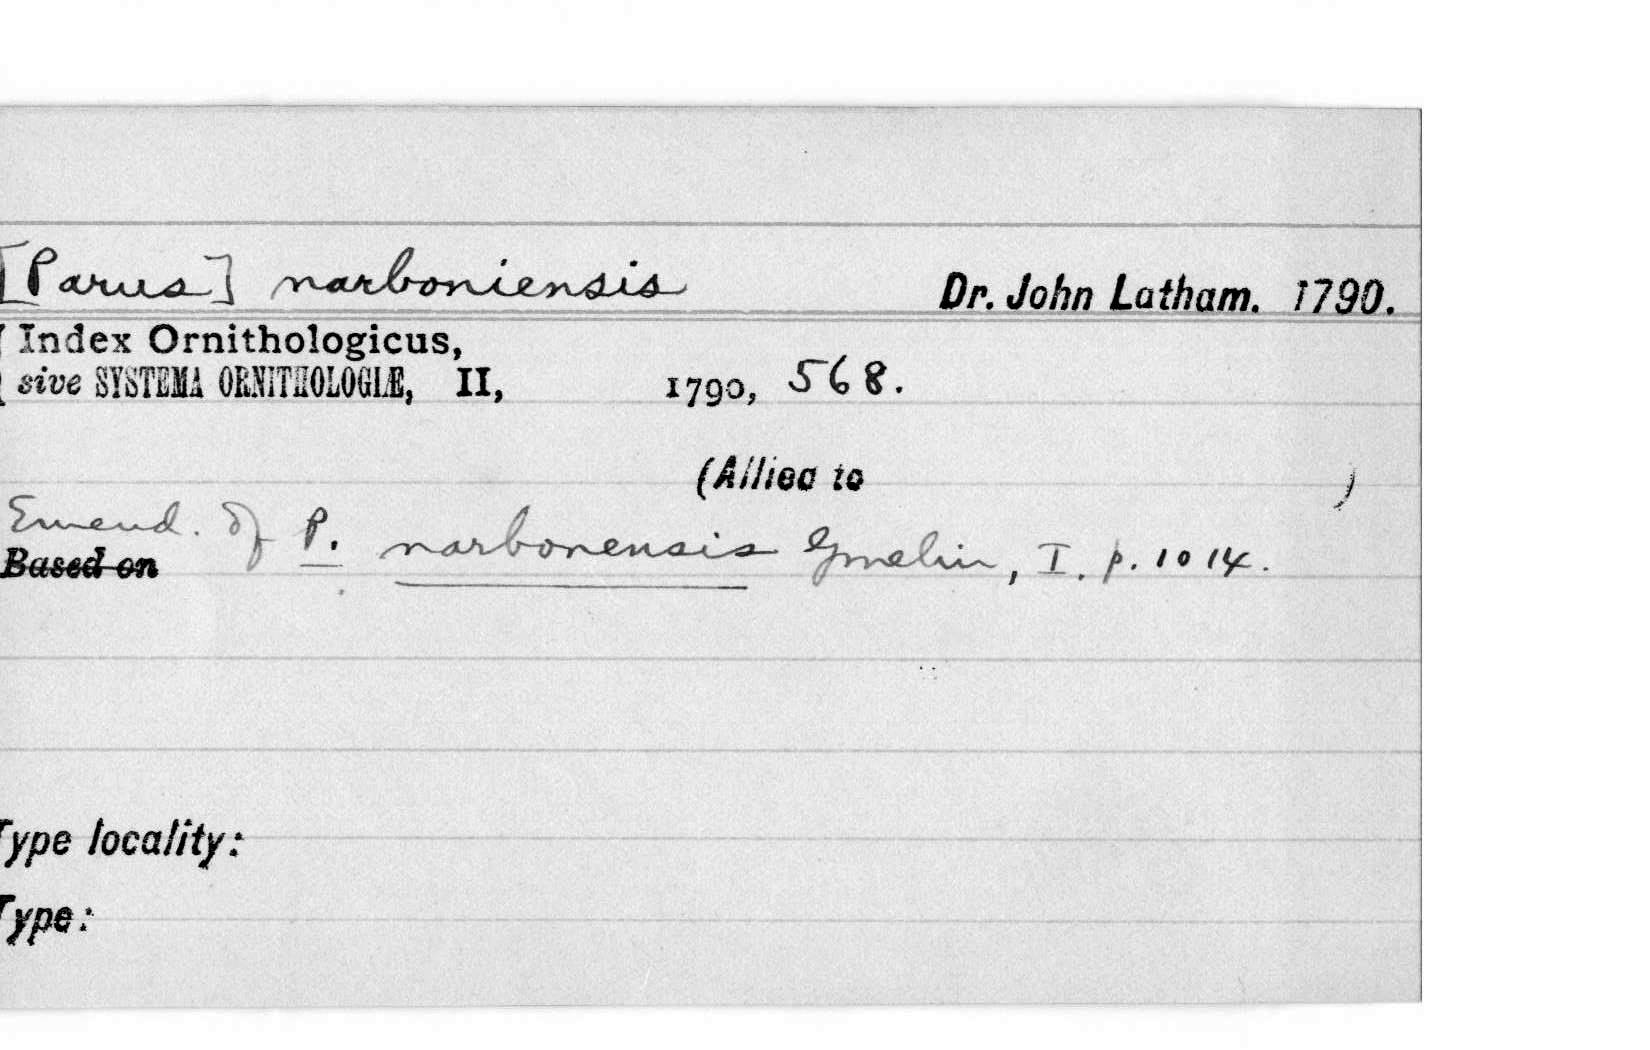 [Parus] narboniensis Dr. John Latham. 1790.
Index Ornithologicus,
sive SYSTEMA ORNITHOLOGIÆ, II, 1790, 568.
(Allied to )
Emend. of P. narbonensis Gmelin, I. p. 1014.
Based on
Type locality:
Type: